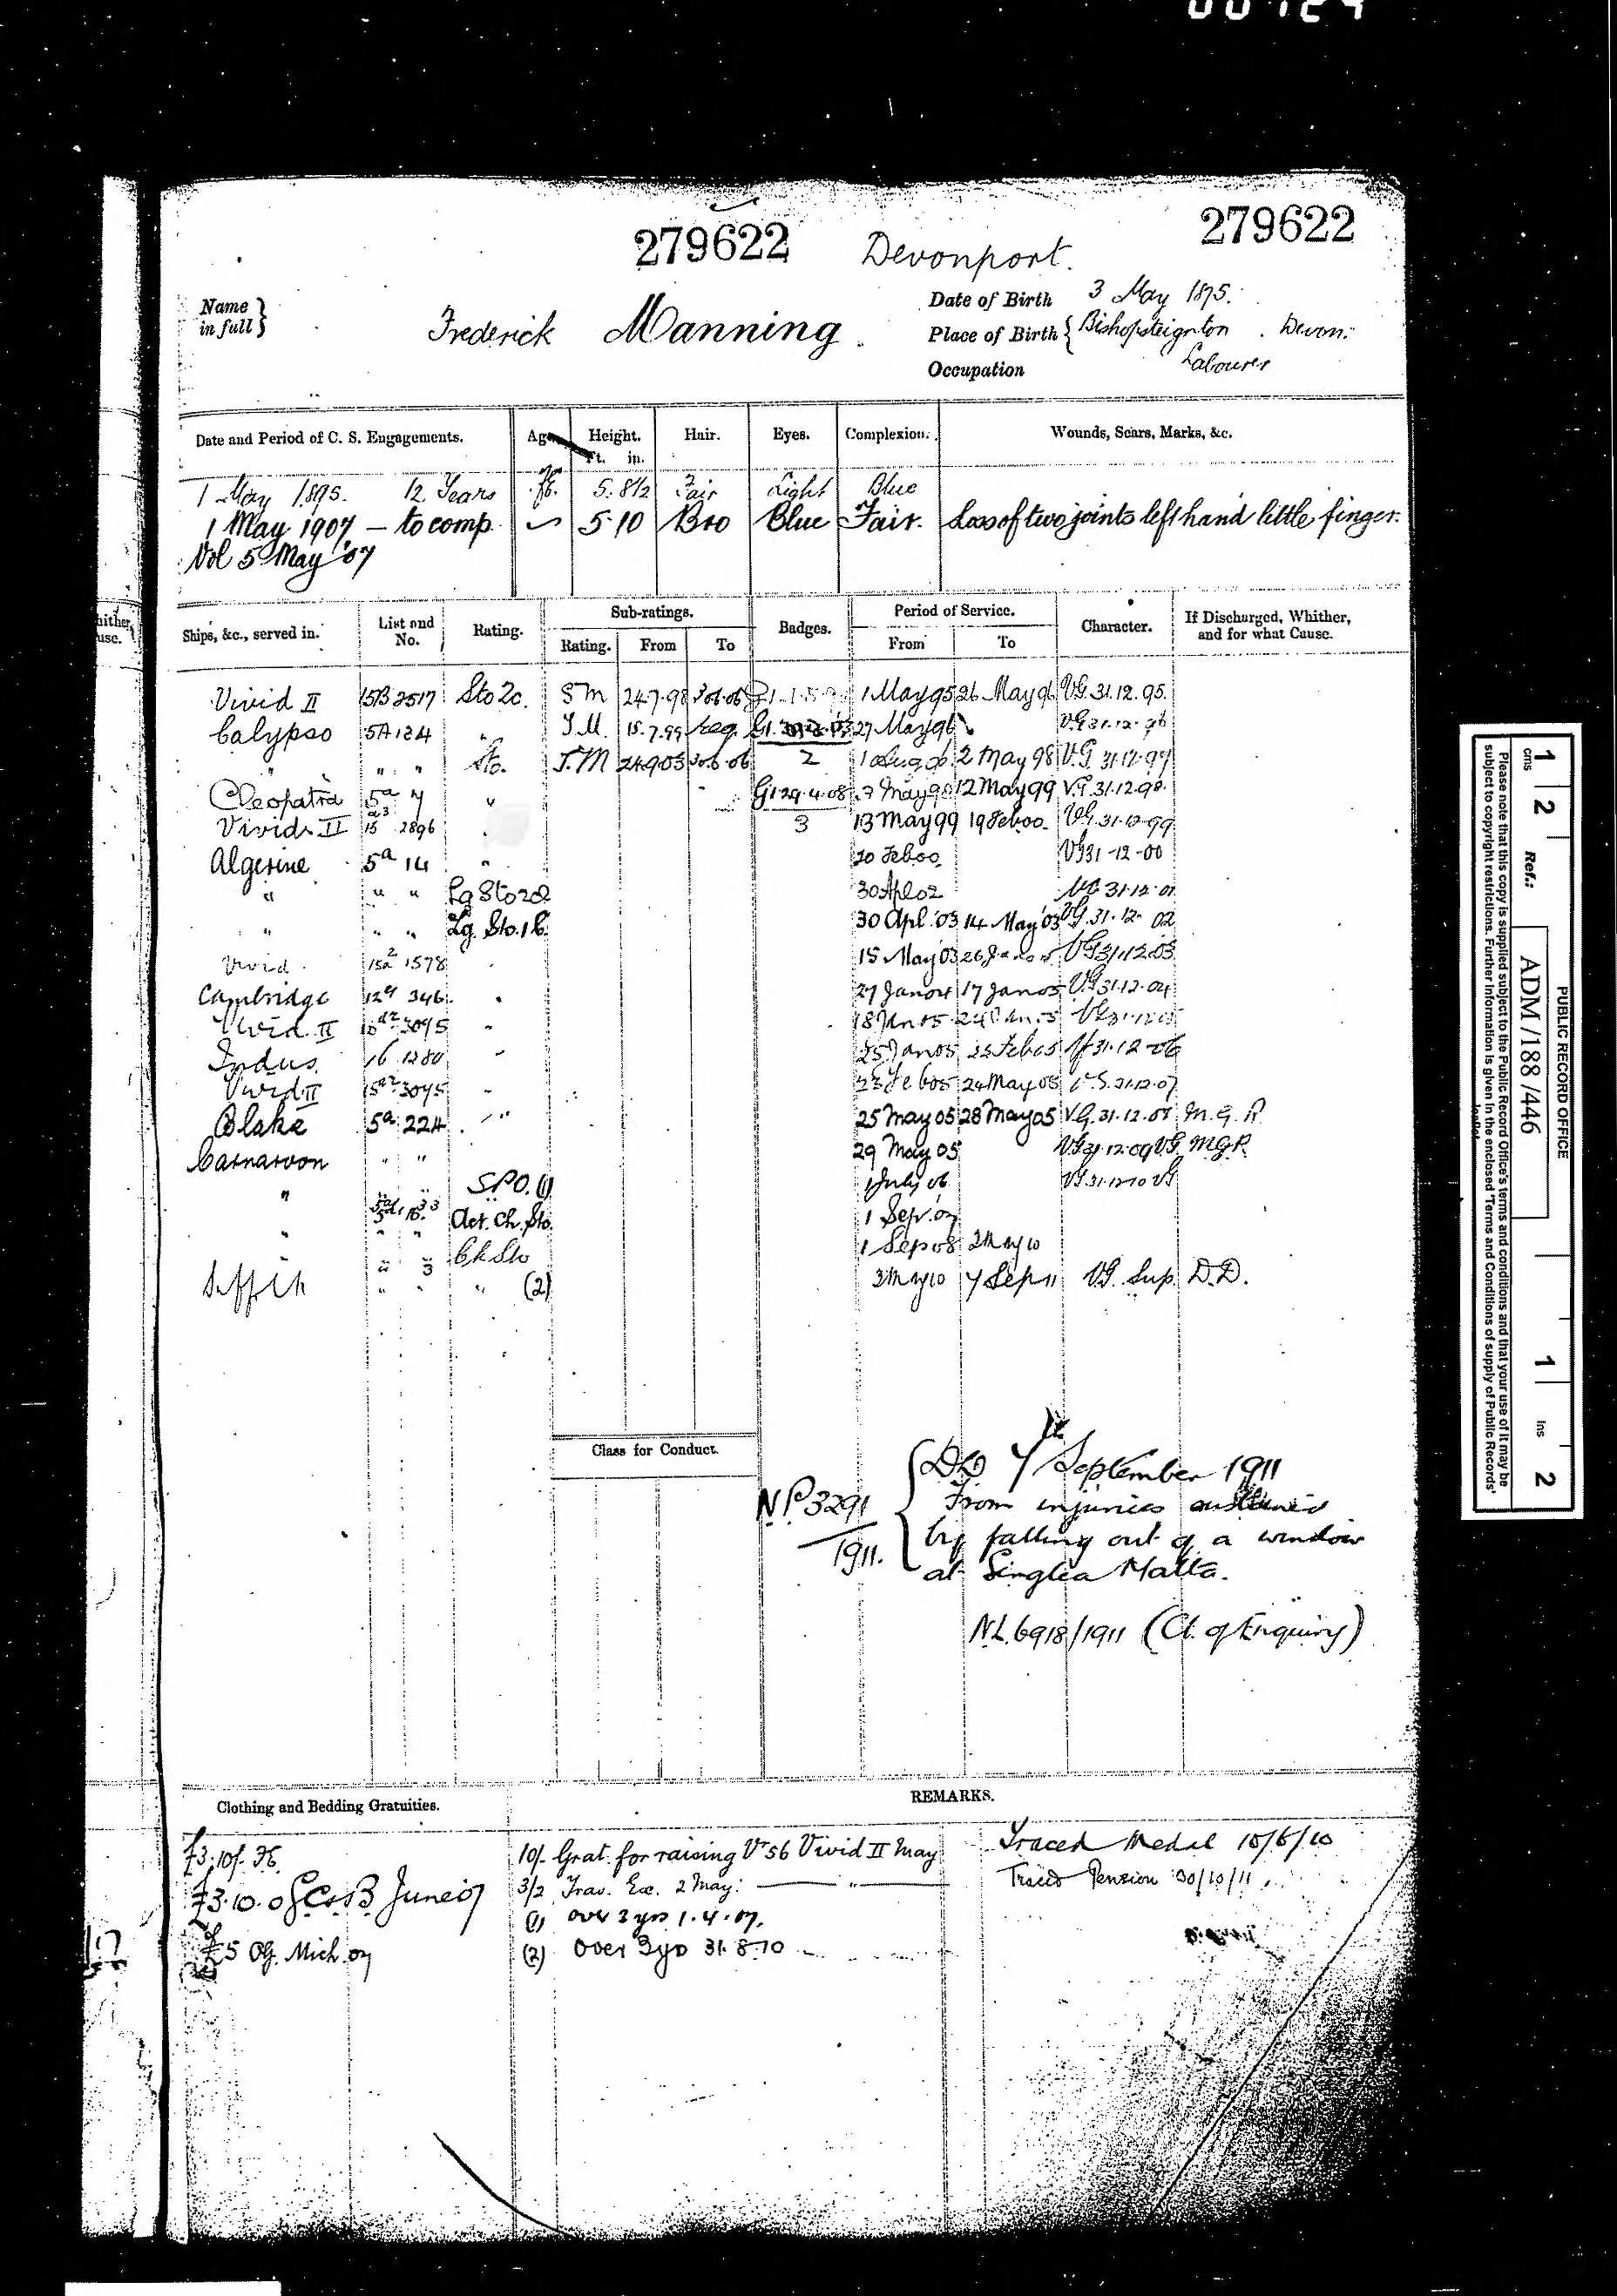 279622 Devonport. 279622
Name in full } Frederick Manning.
Date of Birth 3 May 1875.
Place of Birth { Bishopsteignton. Devon:
Occupation Labourer
Date and Period of C. S. Engagements. Age. Height. Ft. in. Hair. Eyes. Complexion. Wounds, Scars, Marks, &c.
1 May 1895. 12 Years 5. 8½ Fair Light Blue
1 May 1907 – to comp. 5·10 Bro Blue Fair. Loss of two joints left hand little finger.
Vol 5 May '07
Ships, &c., served in. List and No. Rating. Sub-ratings. Rating. From To Badges. Period of Service. From To Character. If Discharged, Whither, and for what Cause.
Vivid II 15B 2517 Sto 2c. SM 24.7.98 1 May 95 26 May 96 VG. 31.12.95.
Calypso 5A 124 " 15.7.99 27 May 96 VG 31.12.96
" " " Sto. 24.9.03 2 2 May 98 V.G. 31.12.97
Cleopatra 5a 7 " G1 29.4.08 12 May 99 V.G. 31.12.98.
Vivid II 15 2896 3 13 May 99 19 Feb 00 VG. 31.12.99
Algerine 5a 14 " 20 Feb 00 VG 31-12-00
" " " Lg Sto 2cl 30 Apl 02 VG 31.12.01
" " " Lg. Sto. 1c. 30 Apl '03 14 May '03 VG. 31.12.02
Vivid 15a2 1578 15 May '03 VG 31.12.03
Cambridge 12a 346 27 Jan 04 17 Jan 05 VG 31.12.04
Vivid II 15a2 3095 " 18 Jan 05
Indus. 16 1280 " 25 Jan 05 31.12.06
Vivid II 15a2 3095 " 24 May 05 31.12.07
Blake 5a 224 " 25 May 05 28 May 05 V.G. 31.12.08 M.G.R.
Carnarvon " " 29 May 05 VG 31.12.09 VG M.G.R.
" " " S.P.O. (1) 1 July 06 VG. 31.12.10 VG
" Act. Ch. Sto. 1 Sep. 07
" " " Ch Sto 1 Sep 08 2 May 10
Suffolk " " " (2) 3 May 10 7 Sep 11 VG. Sup. D.D.
Class for Conduct.
N.P. 3291/1911. { DD 7th September 1911
From injuries sustained
by falling out of a window
at Senglea Malta.
N.L. 6918/1911 (Ct. of Enquiry)
Clothing and Bedding Gratuities. REMARKS.
£3.10/-
£3.10.0 June 07
£5 Mich. 07
10/- Grat. for raising Vivid II May
3/2 Trav. Ex. 2 May: — " —
(1) over 3 yrs 1.4.07.
(2) Over 3 yrs 31.8.10
Traced Medal 10/6/10
Traced Pension 30/10/11.
PUBLIC RECORD OFFICE
cms 1 2 Ref.: ADM/188/446 1 ins 2
Please note that this copy is supplied subject to the Public Record Office's terms and conditions and that your use of it may be
subject to copyright restrictions. Further information is given in the enclosed 'Terms and Conditions of supply of Public Records'
leaflet